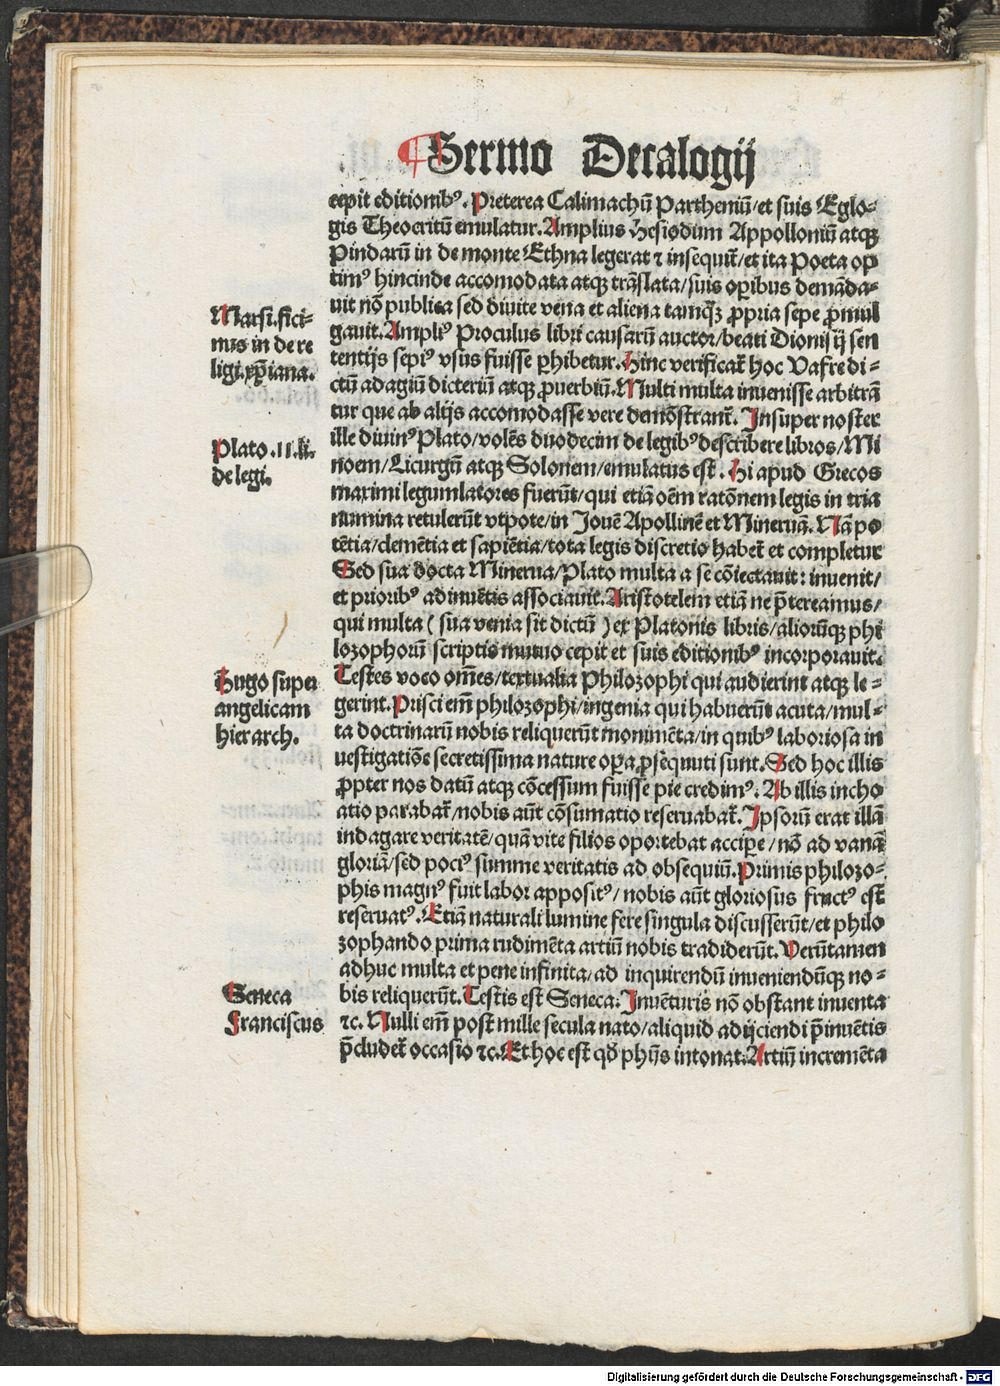 ¶Sermo Decalogij
cepit editionibꝰ. Preterea Calimachū Partheniū/et suis Eglo-
gis Theocritū emulatur. Amplius Hesiodum Appolloniū atqꝫ
Pindarū in de monte Ethna legerat ⁊ inseqͥt̄/et ita Poeta op
timꝰ hincinde accomodata atqꝫ trāslata/suis oꝑibus demāda-
uit nō publica sed diuite vena et aliena tamqꝫ̄ ꝓpria sepe ꝓmul
gauit. Ampliꝰ Proculus libri causarū auctor/beati Dionisij sen
tentijs sepiꝰ vsus fuisse ꝑhibetur. Hinc verificat̄ hoc Vafre di-
ctū adagiū dicteriū atqꝫ ꝓuerbiū. Multi multa inuenisse arbitrā
tur que ab alijs accomodasse vere demōstrant̄. Insuper noster
ille diuinꝰ Plato/volēs duodecim de legibꝰ describere libros/Mi
noem/Licurgū atqꝫ Solonem/emulatus est. Hi apud Grecos
maximi legumlatores fuerūt/qui etiā oēm ratōnem legis in tria
numina retulerūt vtpote/in Jouē Apollinē et Mineruā. Nā po
tētia/clemētia et sapiētia/tota legis discretio habet̄ et completur
Sed sua docta Minerua/Plato multa a se cōiectauit: inuenit/
et prioribꝰ adinuētis associauit. Aristotelem etiā ne p̄tereamus/
qui multa ( sua venia sit dictū ) ex Platonis libris/aliorūqꝫ phi
lozophorū scriptis mutuo cepit et suis editionibꝰ incorporauit.
Testes voco om̄es/textualia Philozophi qui audierint atqꝫ le-
gerint. Prisci em̄ philozophi/ingenia qui habuerūt acuta/mul-
ta doctrinarū nobis reliquerūt monimēta/in quibꝰ laboriosa in
uestigatiōe secretissima nature oꝑa ꝓsēquuti sunt. Sed hoc illis
ꝓpter nos datū atqꝫ cōcessum fuisse pie credimꝰ. Ab illis incho
atio parabat̄/nobis aūt cōsumatio reseruabat̄. Ipsorū erat illā
indagare veritatē/quā vite filios oportebat acciꝑe/nō ad vanā
gloriā/sed pociꝰ summe veritatis ad obsequiū. Primis philozo-
phis magnꝰ fuit labor appositꝰ/nobis aūt gloriosus fructꝰ est
reseruatꝰ. Etiā naturali lumine fere singula discusserūt/et philo
zophando prima rudimēta artiū nobis tradiderūt. Verūtamen
adhuc multa et pene infinita/ad inquirendū inueniendūqꝫ no-
bis reliquerūt. Testis est Seneca. Inuēturis nō obstant inuenta
⁊c. Nulli em̄ post mille secula nato/aliquid adijciendi p̄inuētis
p̄cludet̄ occasio ⁊c. Et hoc est qd̄ phijs intonat. Artiū incremēta
Marsi. fici-
nus in de re
ligi. xp̄iana.
Plato .11. li.
de legi.
Hugo super
angelicam
hierarch.
Seneca
Franciscus
Digitalisierung gefördert durch die Deutsche Forschungsgemeinschaft - DFG